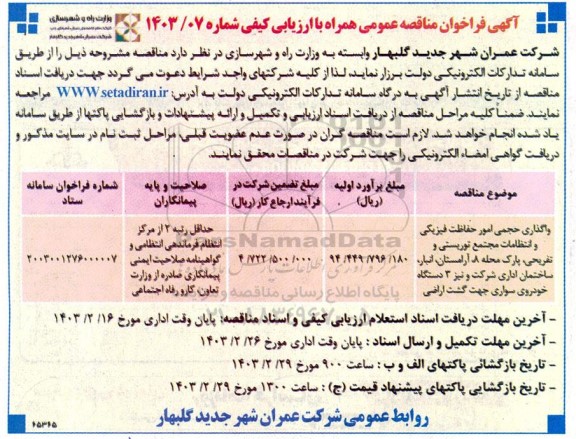 آگهی فراخوان مناقصه عمومی همراه با ارزیابی کیفی شماره ۰۷/ ۱۴۰۳
وزارت راه و شهرسازی
شرکت عمران شهر جدید گلبهار وابسته به وزارت راه و شهرسازی در نظر دارد مناقصه مشروحه ذیل را از طریق
سامانه تدارکات الکترونیکی دولت برزار نماید، لذا از کلیه شرکتهای واجد شرایط دعوت می گردد جهت دریافت اسناد
مناقصه از تاریخ انتشار آگهی به درگاه سامانه تدارکات الکترونیکی دولت به آدرس: WWW.setadiran.ir مراجعه
نمایند. ضمناً کلیه مراحل مناقصه از دریافت اسناد ارزیابی و تکمیل و ارائه پیشنهادات و بازگشایی پاکتها از طریق سامانه
یاد شده انجام خواهد شد. لازم است مناقصه گران در صورت عدم عضویت قبلی، مراحل ثبت نام در سایت مذکور و
دریافت گواهی امضاء الکترونیکی را جهت شرکت در مناقصات محقق نمایند.
موضوع مناقصه
مبلغ برآورد اولیه (ریال)
مبلغ تضمین شرکت در فرآیند ارجاع کار (ریال)
صلاحیت و پایه پیمانکاران
شماره فراخوان سامانه ستاد
واگذاری حجمی امور حفاظت فیزیکی
و انتظامات مجتمع توریستی و
تفریحی، پارک محله ۸ آرامستان، انبار،
ساختمان اداری شرکت و نیز ۲ دستگاه
خودروی سواری جهت گشت اراضی
۹۴/۴۴۹/۷۹۶/۱۸۰
۴/۷۲۲/۵۰۰/۰۰۰
حداقل رتبه ۲ از مرکز
انتظام فرماندهی انتظامی و
گواهینامه صلاحیت ایمنی
پیمانکاری صادره از وزارت
تعاون، کار و رفاه اجتماعی
۲۰۰۳۰۰۱۲۷۶۰۰۰۰۰۷
ParsNamadData
پایگاه اطلاع رسانی مناقصه و مزایده
- آخرین مهلت دریافت اسناد استعلام ارزیابی کیفی و اسناد مناقصه: پایان وقت اداری مورخ ۱۶/ ۲/ ۱۴۰۳
- آخرین مهلت تکمیل و ارسال اسناد : پایان وقت اداری مورخ ۲۶/ ۲/ ۱۴۰۳
- تاریخ بازگشائی پاکتهای الف و ب : ساعت ۹۰۰ مورخ ۲۹/ ۲/ ۱۴۰۳
- تاریخ بازگشایی پاکتهای پیشنهاد قیمت (ج) : ساعت ۱۳۰۰ مورخ ۲۹/ ۲/ ۱۴۰۳
روابط عمومی شرکت عمران شهر جدید گلبهار
۶۵۳۶۵